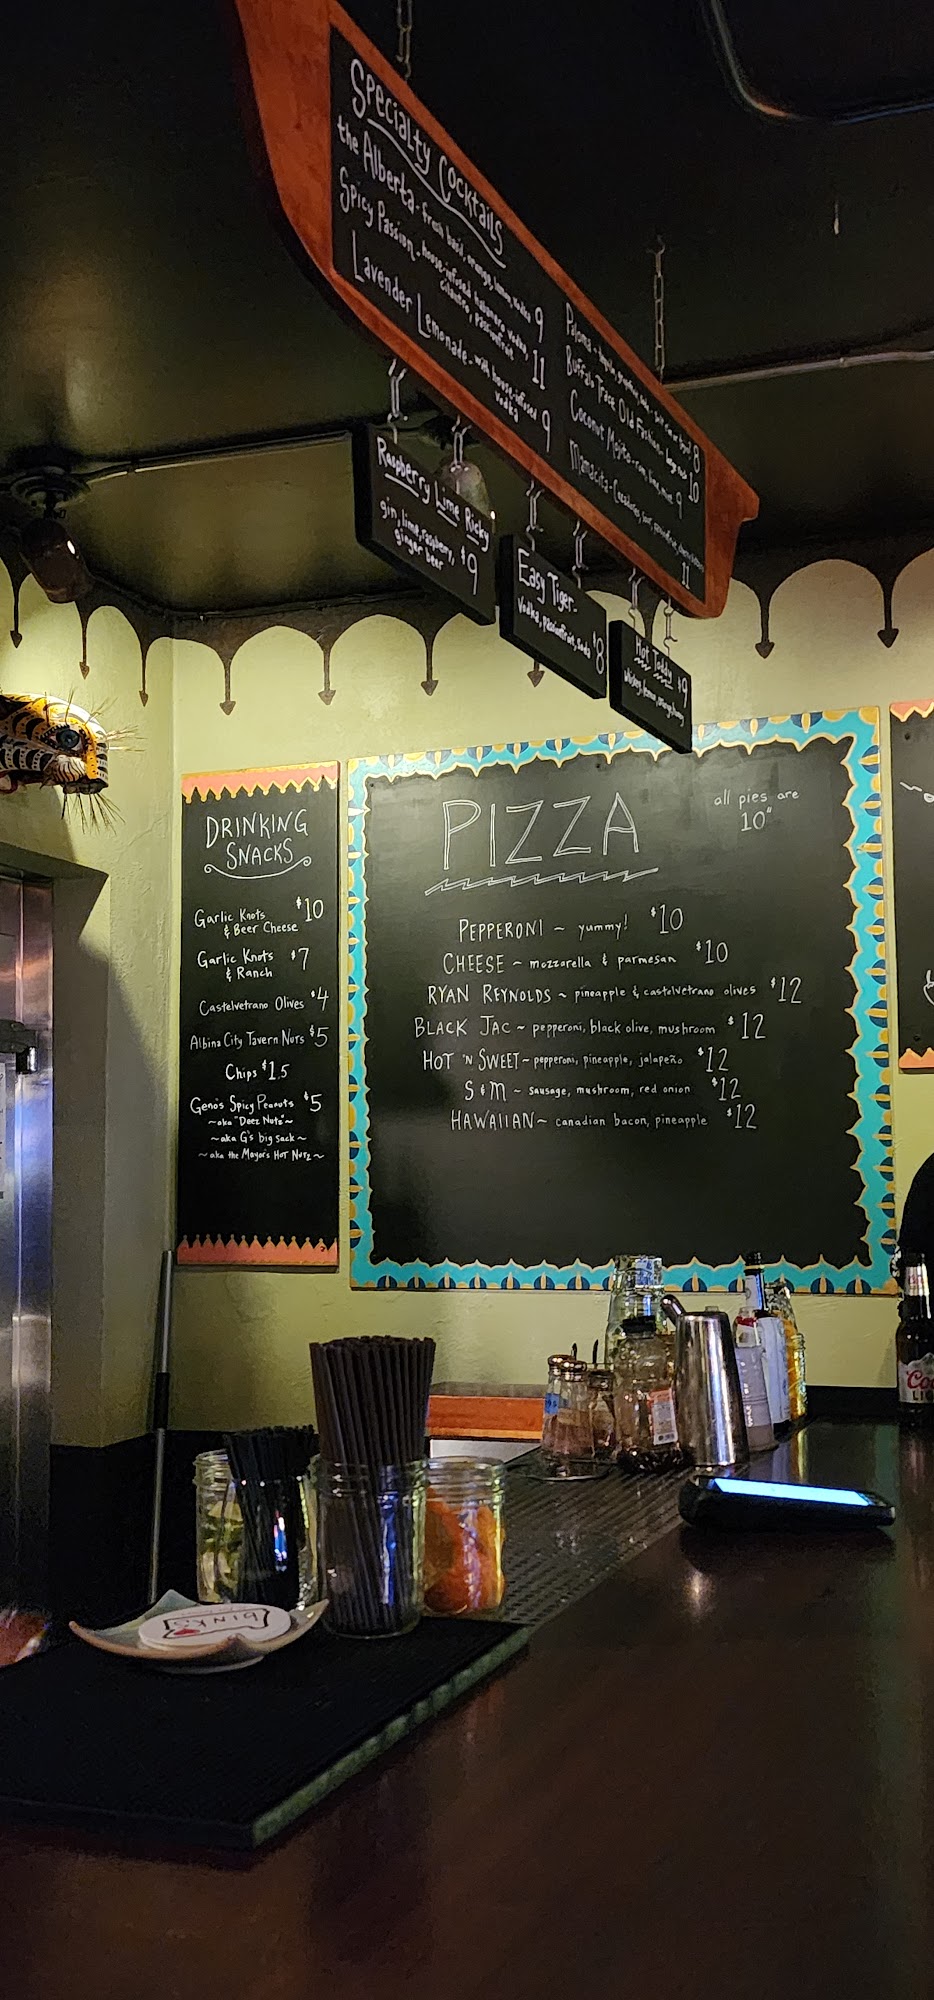 Specialty Cocktails
the Alberta - fresh basil, orange, lemon, vodka 9
Spicy Passion - house-infused habanero vodka,
cilantro, passionfruit 11
Lavender Lemonade - with house-infused
vodka 9
Paloma - tequila, grapefruit, soda 8
Buffalo Trace Old Fashion 10
Coconut Mojito - rum, lime, mint 9
Mamacita - 11
Raspberry Lime Ricky
gin, lime, raspberry,
ginger beer $9
Easy Tiger -
vodka, passionfruit, soda $8
Hot Toddy $9
whiskey, lemon
DRINKING
SNACKS
Garlic Knots $10
& Beer Cheese
Garlic Knots $7
& Ranch
Castelvetrano Olives $4
Albina City Tavern Nuts $5
Chips $1.5
Geno's Spicy Peanuts $5
~aka "Deez Nuts"~
~aka G's big sack~
~aka the Mayor's Hot Nutz~
PIZZA
all pies are
10"
PEPPERONI ~ yummy! $10
CHEESE ~ mozzarella & parmesan $10
RYAN REYNOLDS ~ pineapple & castelvetrano olives $12
BLACK JAC ~ pepperoni, black olive, mushroom $12
HOT 'N SWEET ~ pepperoni, pineapple, jalapeño $12
S & M ~ sausage, mushroom, red onion $12
HAWAIIAN ~ canadian bacon, pineapple $12
BINK'S